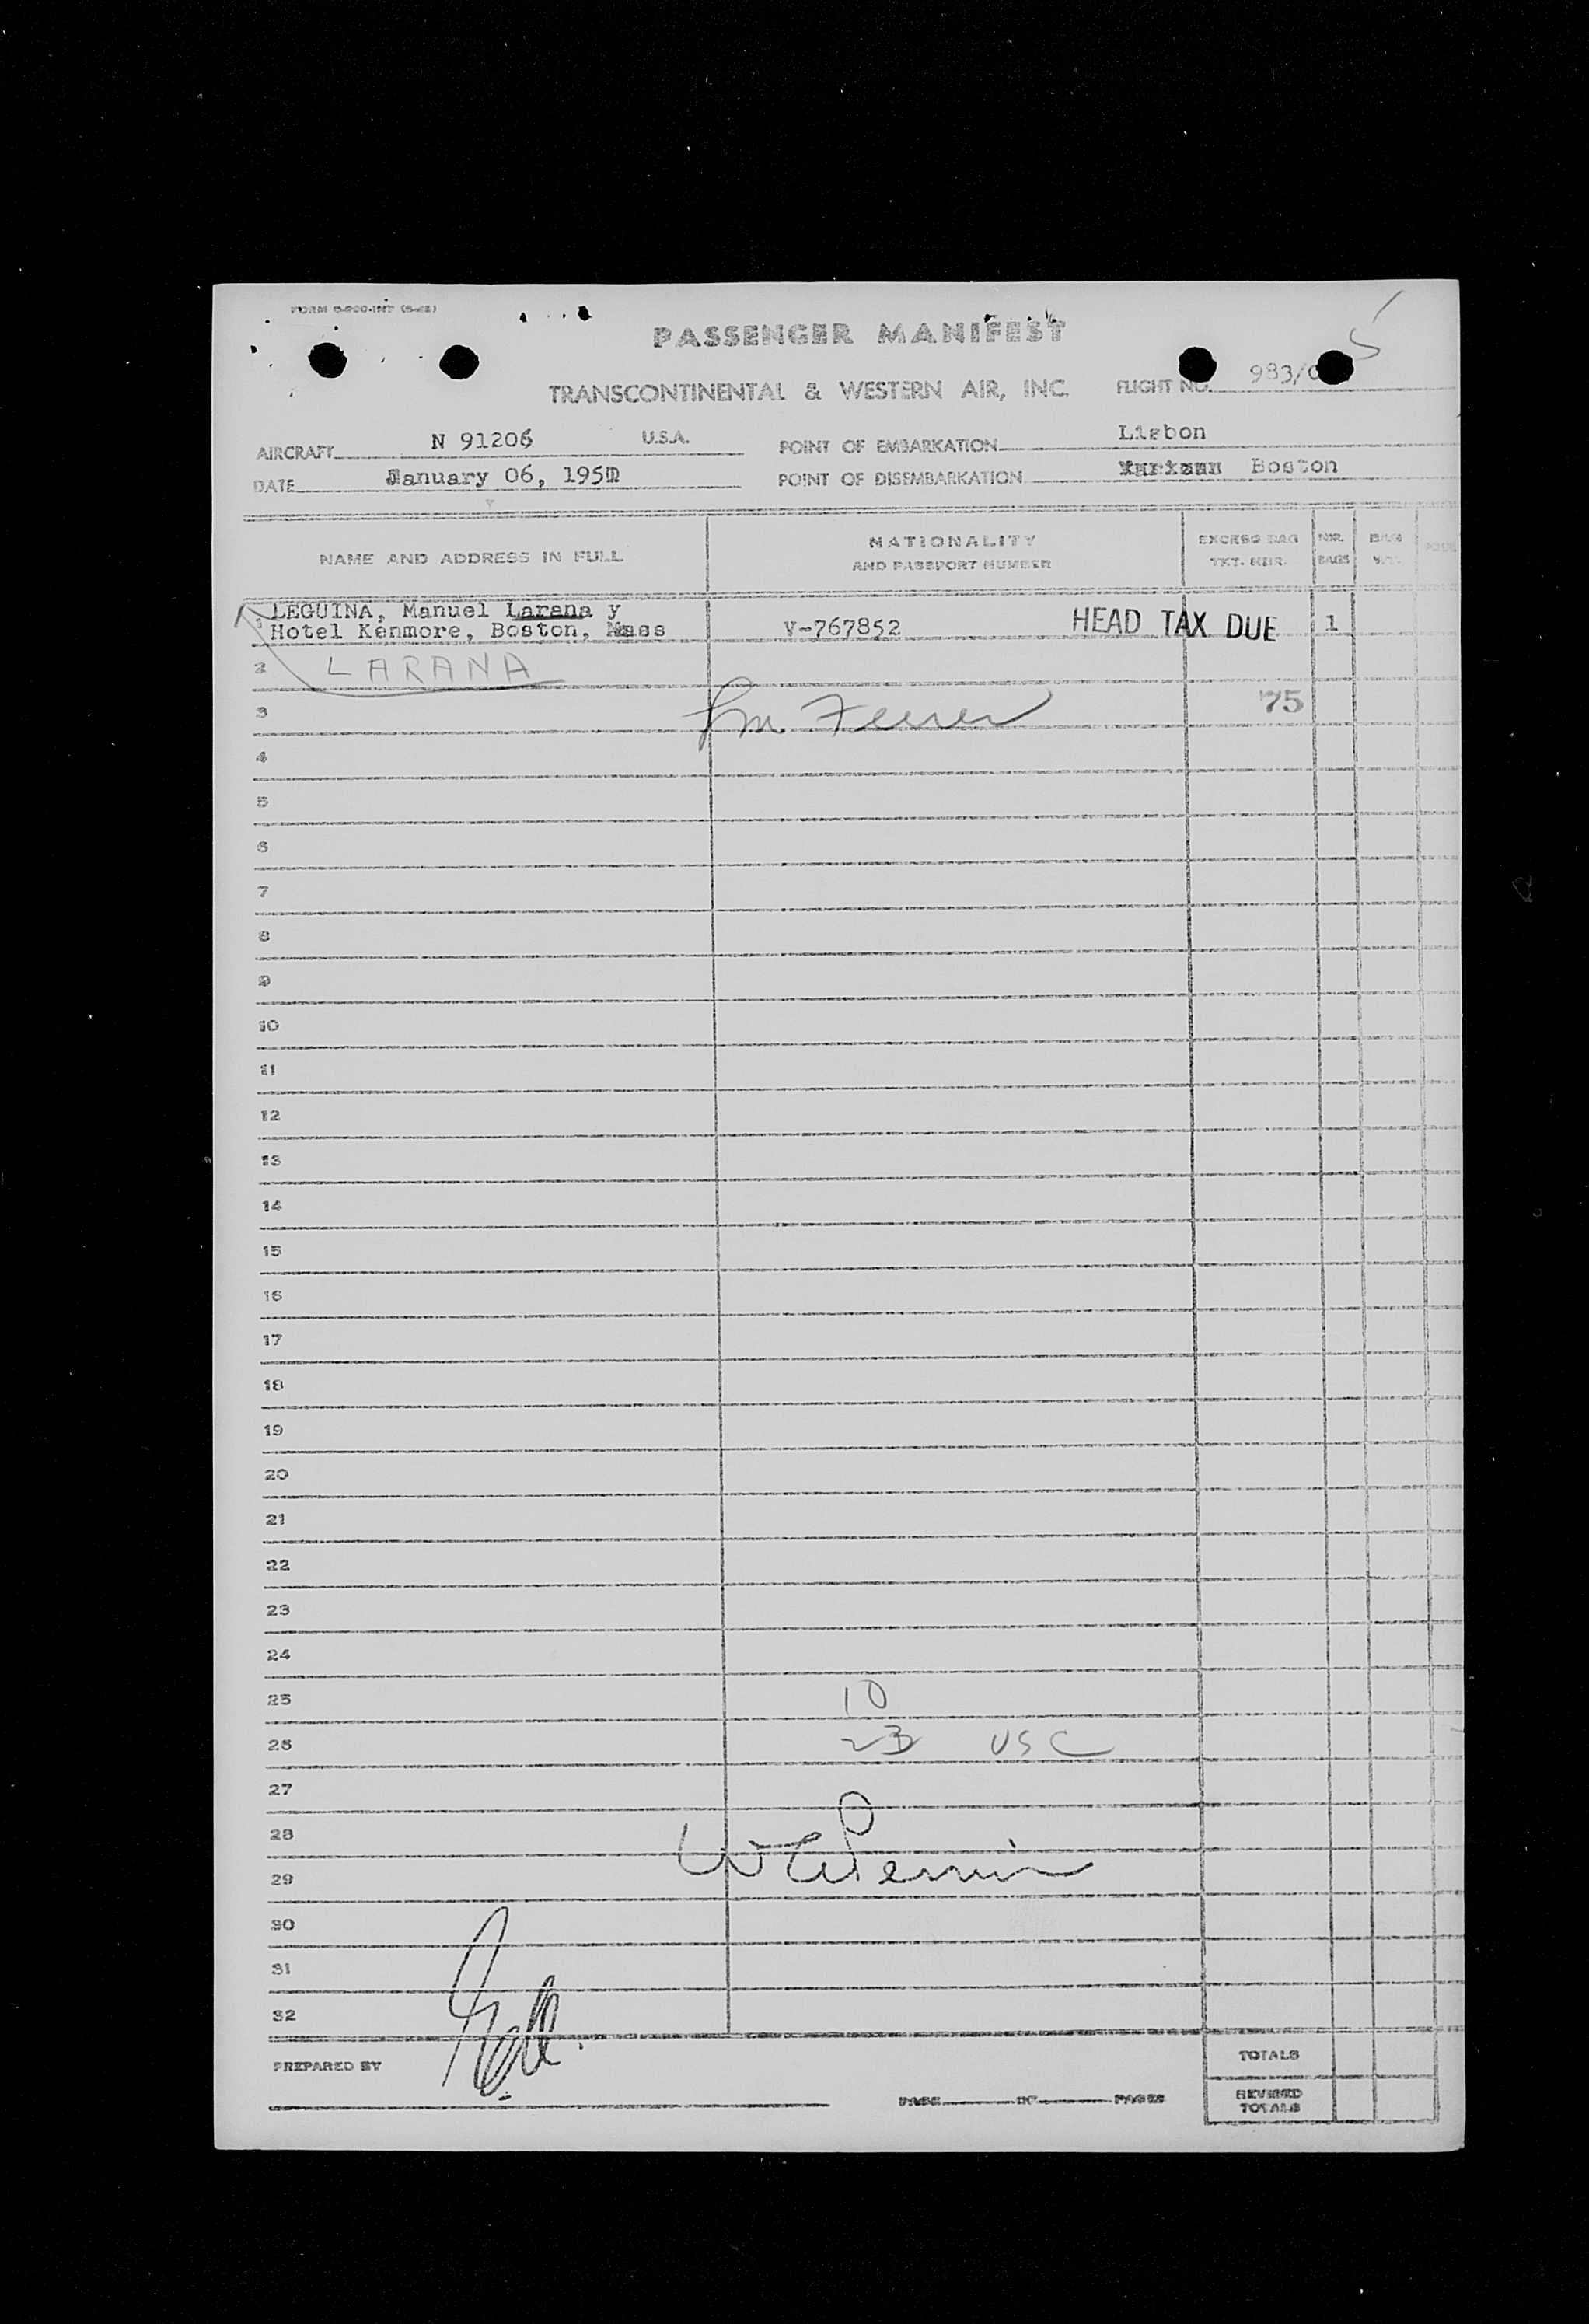 FORM O-900-INT (5-48)
5
PASSENGER MANIFEST
TRANSCONTINENTAL & WESTERN AIR, INC. FLIGHT NO. 983/0
AIRCRAFT N 91206 U.S.A. POINT OF EMBARKATION Lisbon
DATE January 06, 1950 POINT OF DISEMBARKATION Boston
NAME AND ADDRESS IN FULL NATIONALITY AND PASSPORT NUMBER EXCESS BAG TKT. NBR. NBR. BAGS BAG WT.
1 LEGUINA, Manuel Larana y
Hotel Kenmore, Boston, Mass V-767852 HEAD TAX DUE 1
2 LARANA
3 75
4
5
6
7
8
9
10
11
12
13
14
15
16
17
18
19
20
21
22
23
24
25 10
26 23 USC
27
28
29
30
31
32
PREPARED BY TOTALS
PAGE OF PAGES REVISED TOTALS